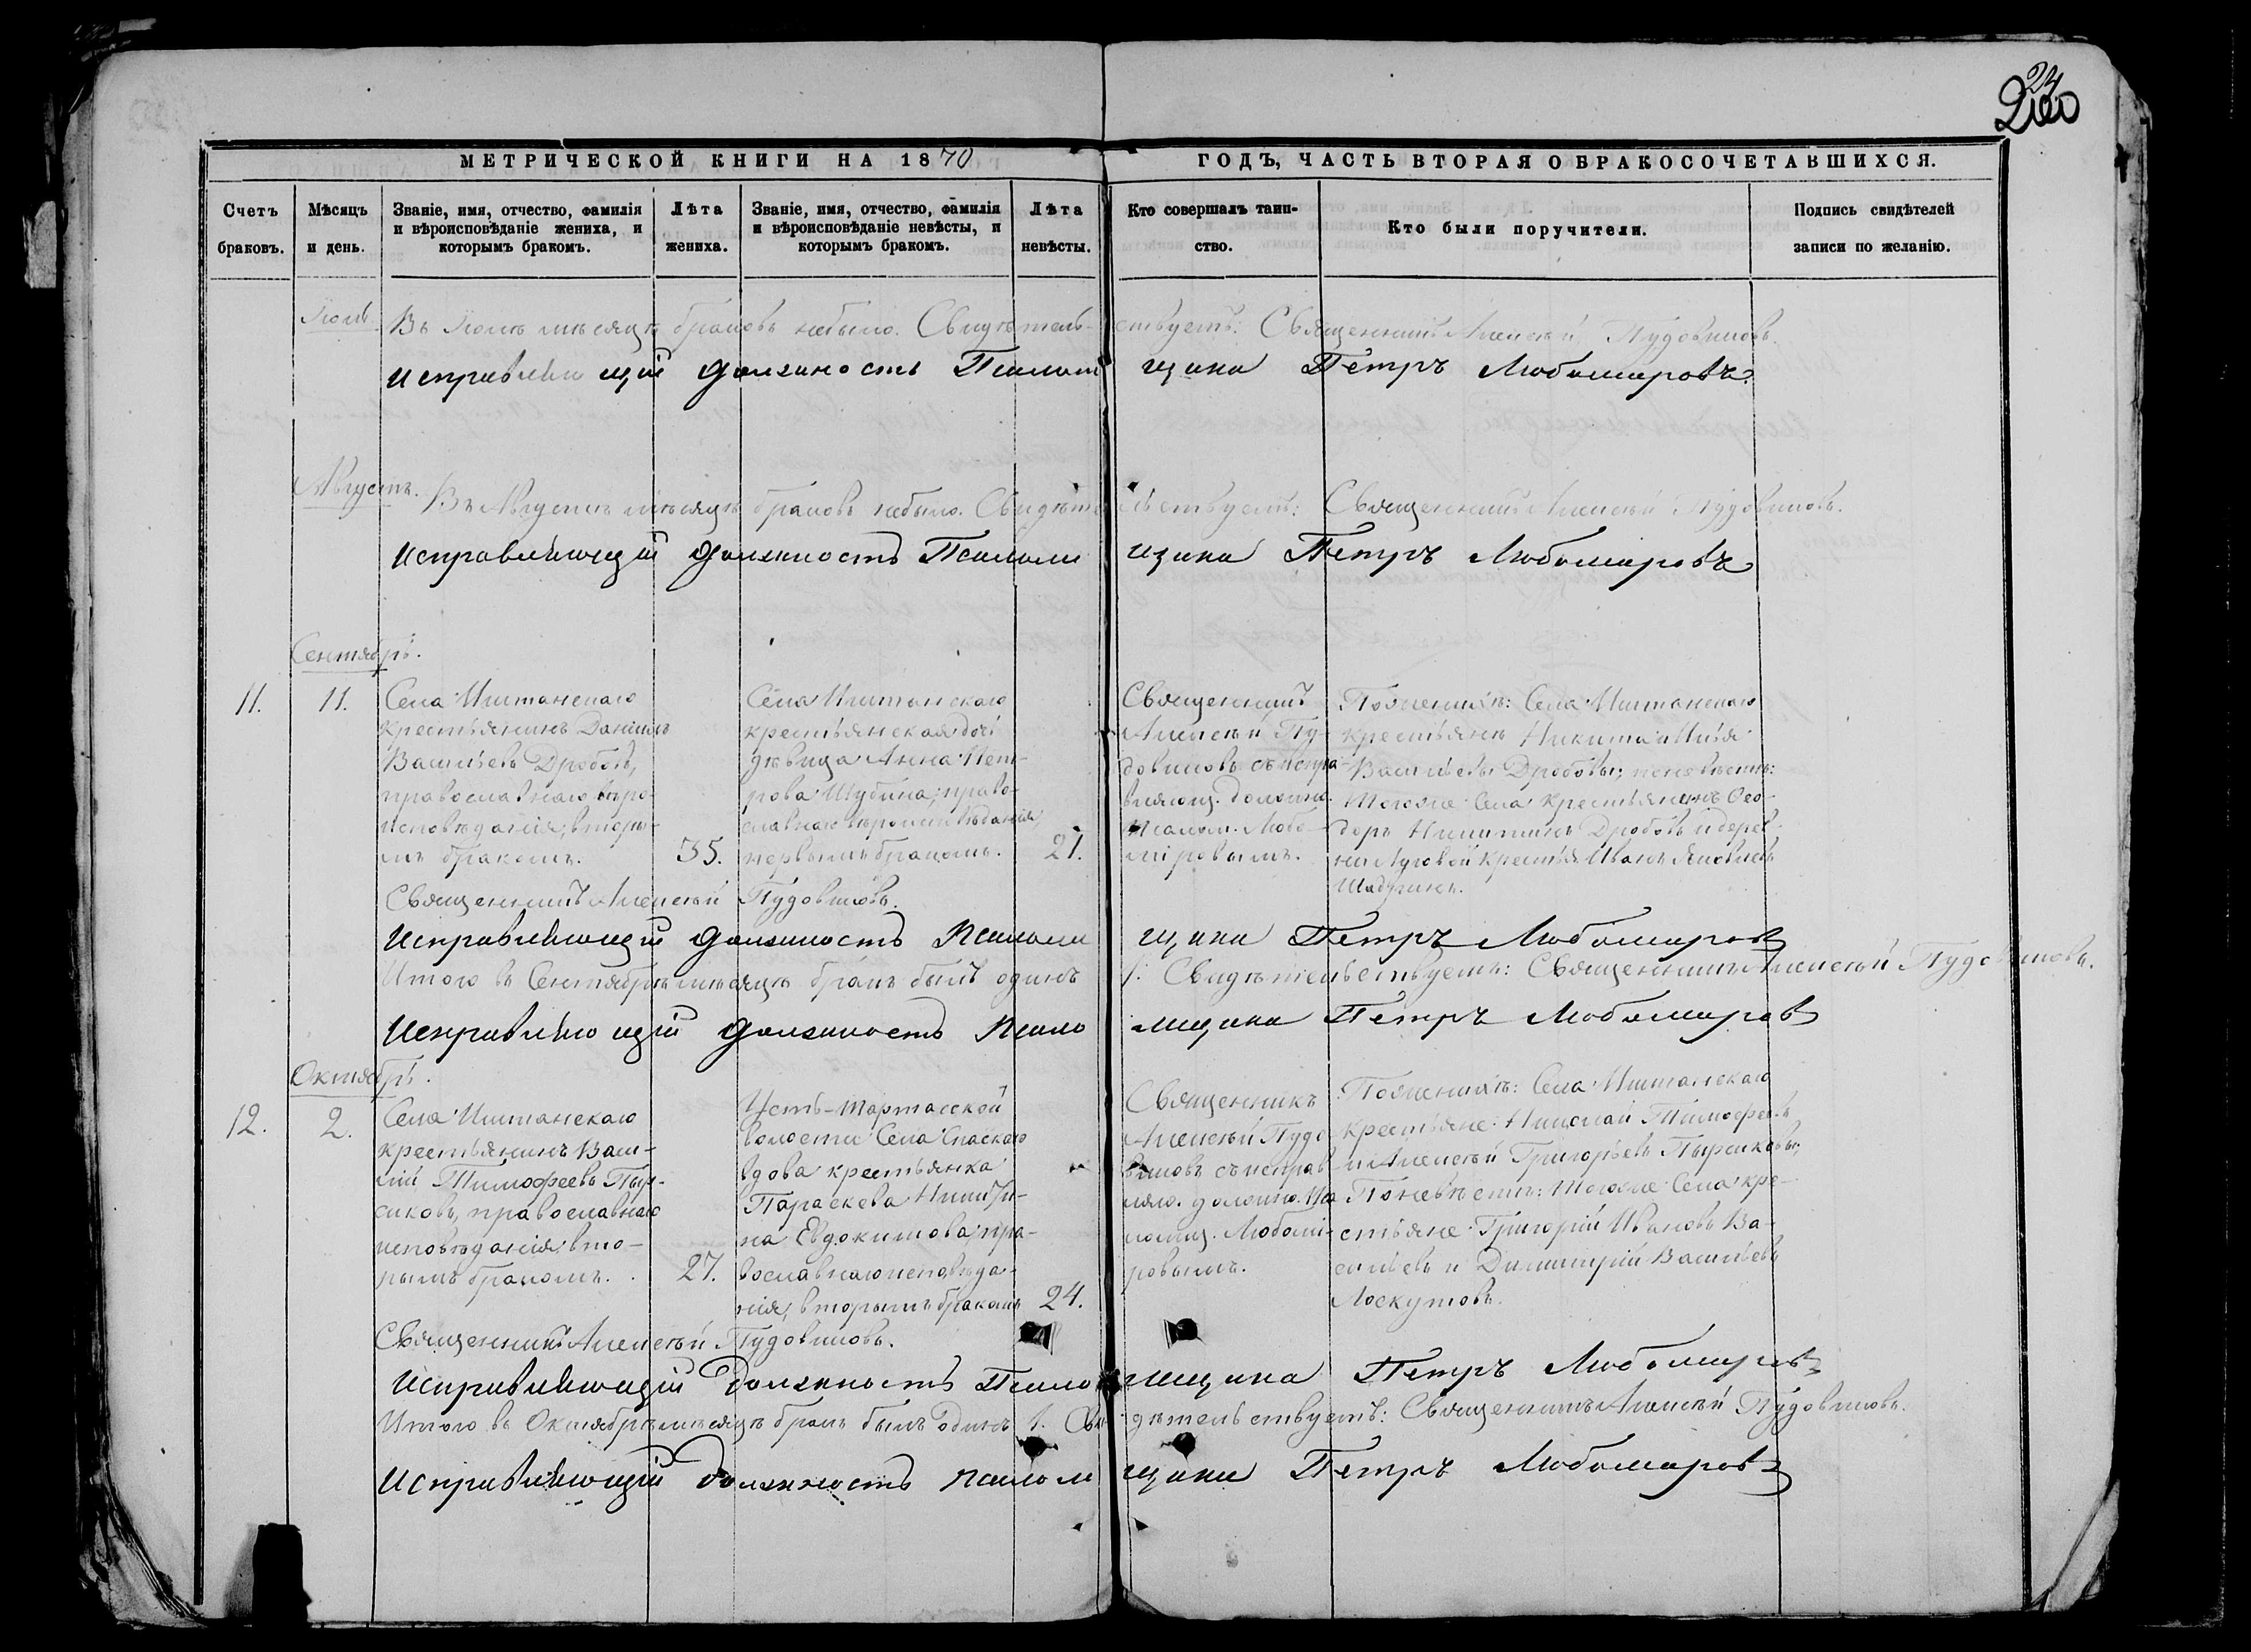 24
200
МЕТРИЧЕСКОЙ КНИГИ НА 1870
ГОДЪ, ЧАСТЬ ВТОРАЯ О БРАКОСОЧЕТАВШИХСЯ.
Счетъ браковъ.
Мѣсяцъ и день.
Званіе, имя, отчество, фамилія
и вѣроисповѣданіе жениха, и
которымъ бракомъ.
Лѣта жениха.
Званіе, имя, отчество, фамилія
и вѣроисповѣданіе невѣсты, и
которымъ бракомъ.
Лѣта невѣсты.
Кто совершалъ таин-
ство.
Кто были поручители.
Подпись свидѣтелей
записи по желанію.
Въ мѣсяцѣ браковъ небыло. Свидѣтельствуетъ: Священникъ Алексѣй Пудовиковъ.
Исправляющій должность Псаломщика Петръ Любомировъ
Августъ.
Въ Августѣ мѣсяцѣ браковъ небыло. Свидѣтельствуетъ: Священникъ Алексѣй Пудовиковъ.
Исправляющій должность Псаломщика Петръ Любомировъ
Сентябрь.
11.
11.
Села Иштанскаго
крестьянинъ Даніилъ
Васильевъ Дробовъ,
православнаго вѣро-
исповѣданія, вторы-
мъ бракомъ.
35.
Села Иштанскаго
крестьянская дочь
дѣвица Анна Пет-
рова Шубина, право-
славнаго вѣроисповѣданія,
первымъ бракомъ.
21.
Священникъ
Алексѣй Пу-
довиковъ съ испра-
вляющ. должно.
Псалом. Любо-
міровымъ.
По женихѣ: Села Иштанскаго
крестьяне Никита и Илья
Васильевы Дробовы; по невѣстѣ:
тогоже Села крестьянинъ Ѳео-
доръ Никитинъ Дробовъ и дерев-
ни Луговой крестья. Иванъ Яковлевъ
Священникъ Алексѣй Пудовиковъ.
Исправляющій должность Псаломщика Петръ Любомировъ
Итого въ Сентябрѣ мѣсяцѣ бракъ былъ одинъ 1. Свидѣтельствуетъ: Священникъ Алексѣй Пудовиковъ.
Исправляющій должность Псаломщика Петръ Любомировъ
Октябрь.
12.
2.
Села Иштанскаго
крестьянинъ Васи-
лій Тимофеевъ Пыр-
сиковъ, православнаго
исповѣданія, вто-
рымъ бракомъ.
27.
Усть-Тартасской
волости Села Спаскаго
вдова крестьянка
Параскева Никити-
на Евдокимова, пра-
вославнаго исповѣда-
нія, вторымъ бракомъ
24.
Священникъ
Алексѣй Пудо-
виковъ съ исправ-
ляю. должно. Пса
ломщ. Любомі-
ровымъ.
По женихѣ: Села Иштанскаго
крестьяне Николай Тимофеевъ
и Алексѣй Григорьевъ Пырсиковы;
По невѣстѣ: тогоже Села кре-
стьяне Григорій Ивановъ Ва-
сильевъ и Димитрій Васильевъ
Лоскутовъ.
Священникъ Алексѣй Пудовиковъ.
Исправляющій Должность Псаломщика Петръ Любомировъ
Итого въ Октябрѣ мѣсяцѣ бракъ былъ одинъ 1. Свидѣтельствуетъ: Священникъ Алексѣй Пудовиковъ.
Исправляющій Должность Псаломщика Петръ Любомировъ